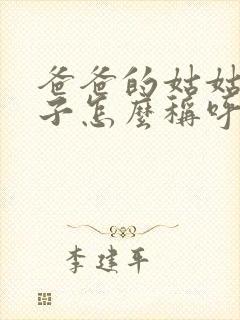 爸爸的姑姑
子怎麽稱呼
李建平